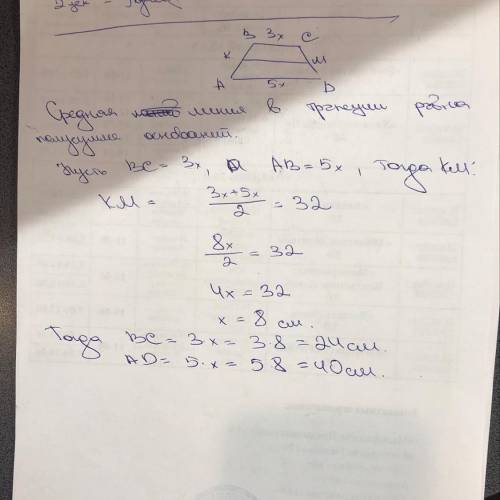 B 3x C
K M
A 5x D
Средная линия в трапеции равна
полусумме оснований.
Пусть BC = 3x, а AB = 5x, тогда KM:
KM = 3x+5x / 2 = 32
8x / 2 = 32
4x = 32
x = 8 см.
Тогда BC = 3x = 3·8 = 24 см.
AD = 5·x = 5 8 = 40 см.